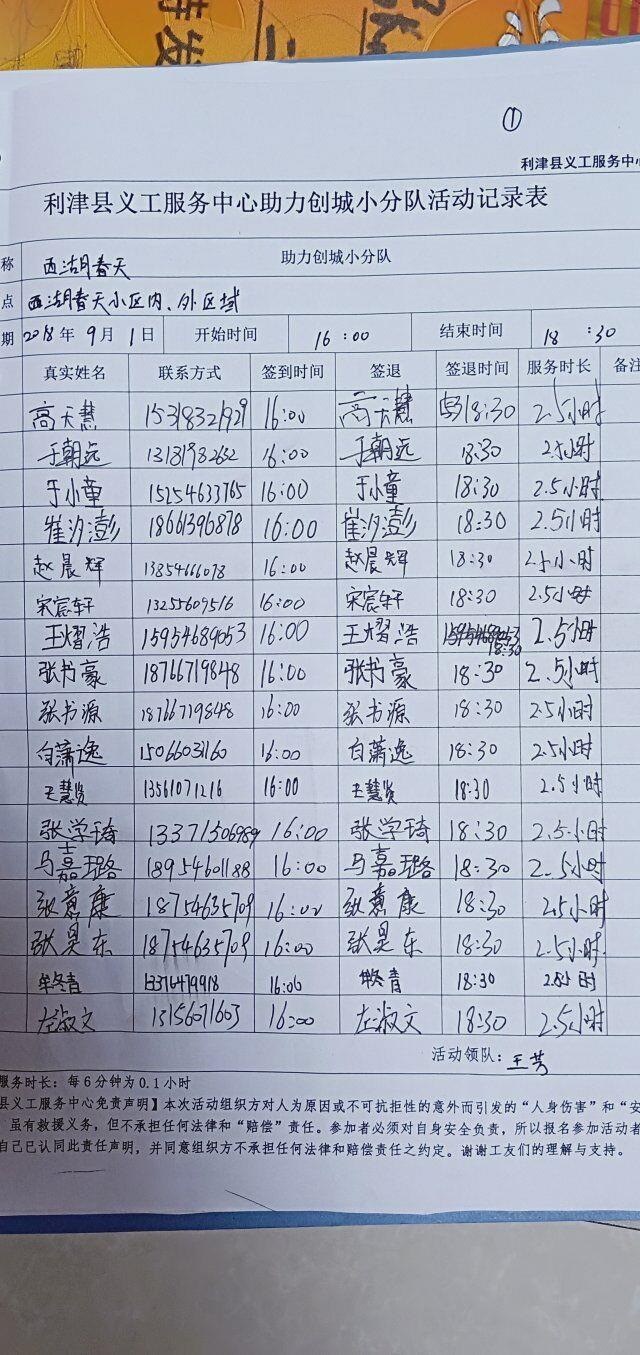 特发
①
利津县义工服务中心
利津县义工服务中心助力创城小分队活动记录表
称 西湖春天 助力创城小分队
点 西湖春天小区内、外区域
期 2018年9月1日 开始时间 16:00 结束时间 18:30
真实姓名 联系方式 签到时间 签退 签退时间 服务时长 备注
高天慧 15318321929 16:00 高天慧 18:30 2.5小时
于朝远 13181982632 16:00 于朝远 18:30 2.5小时
于小童 15254633765 16:00 于小童 18:30 2.5小时
崔汐澎 18661396878 16:00 崔汐澎 18:30 2.5小时
赵晨辉 13854666078 16:00 赵晨辉 18:30 2.5小时
宋宸轩 13255609516 16:00 宋宸轩 18:30 2.5小时
王熠浩 15954689053 16:00 王熠浩 18:30 2.5小时
张书豪 18766719848 16:00 张书豪 18:30 2.5小时
张书源 18766719848 16:00 张书源 18:30 2.5小时
白潇逸 15066031160 16:00 白潇逸 18:30 2.5小时
王慧贤 13561071216 16:00 王慧贤 18:30 2.5小时
张学琦 13371506989 16:00 张学琦 18:30 2.5小时
马嘉璐 18954601188 16:00 马嘉璐 18:30 2.5小时
张意康 18754635709 16:00 张意康 18:30 2.5小时
张昊东 18754635709 16:00 张昊东 18:30 2.5小时
牟冬青 13376479918 16:00 牟冬青 18:30 2.5小时
左淑文 13156071603 16:00 左淑文 18:30 2.5小时
活动领队：王芳
服务时长：每6分钟为0.1小时
县义工服务中心免责声明】本次活动组织方对人为原因或不可抗拒性的意外而引发的“人身伤害”和“安
虽有救援义务，但不承担任何法律和“赔偿”责任。参加者必须对自身安全负责，所以报名参加活动者
自己已认同此责任声明，并同意组织方不承担任何法律和赔偿责任之约定。谢谢工友们的理解与支持。